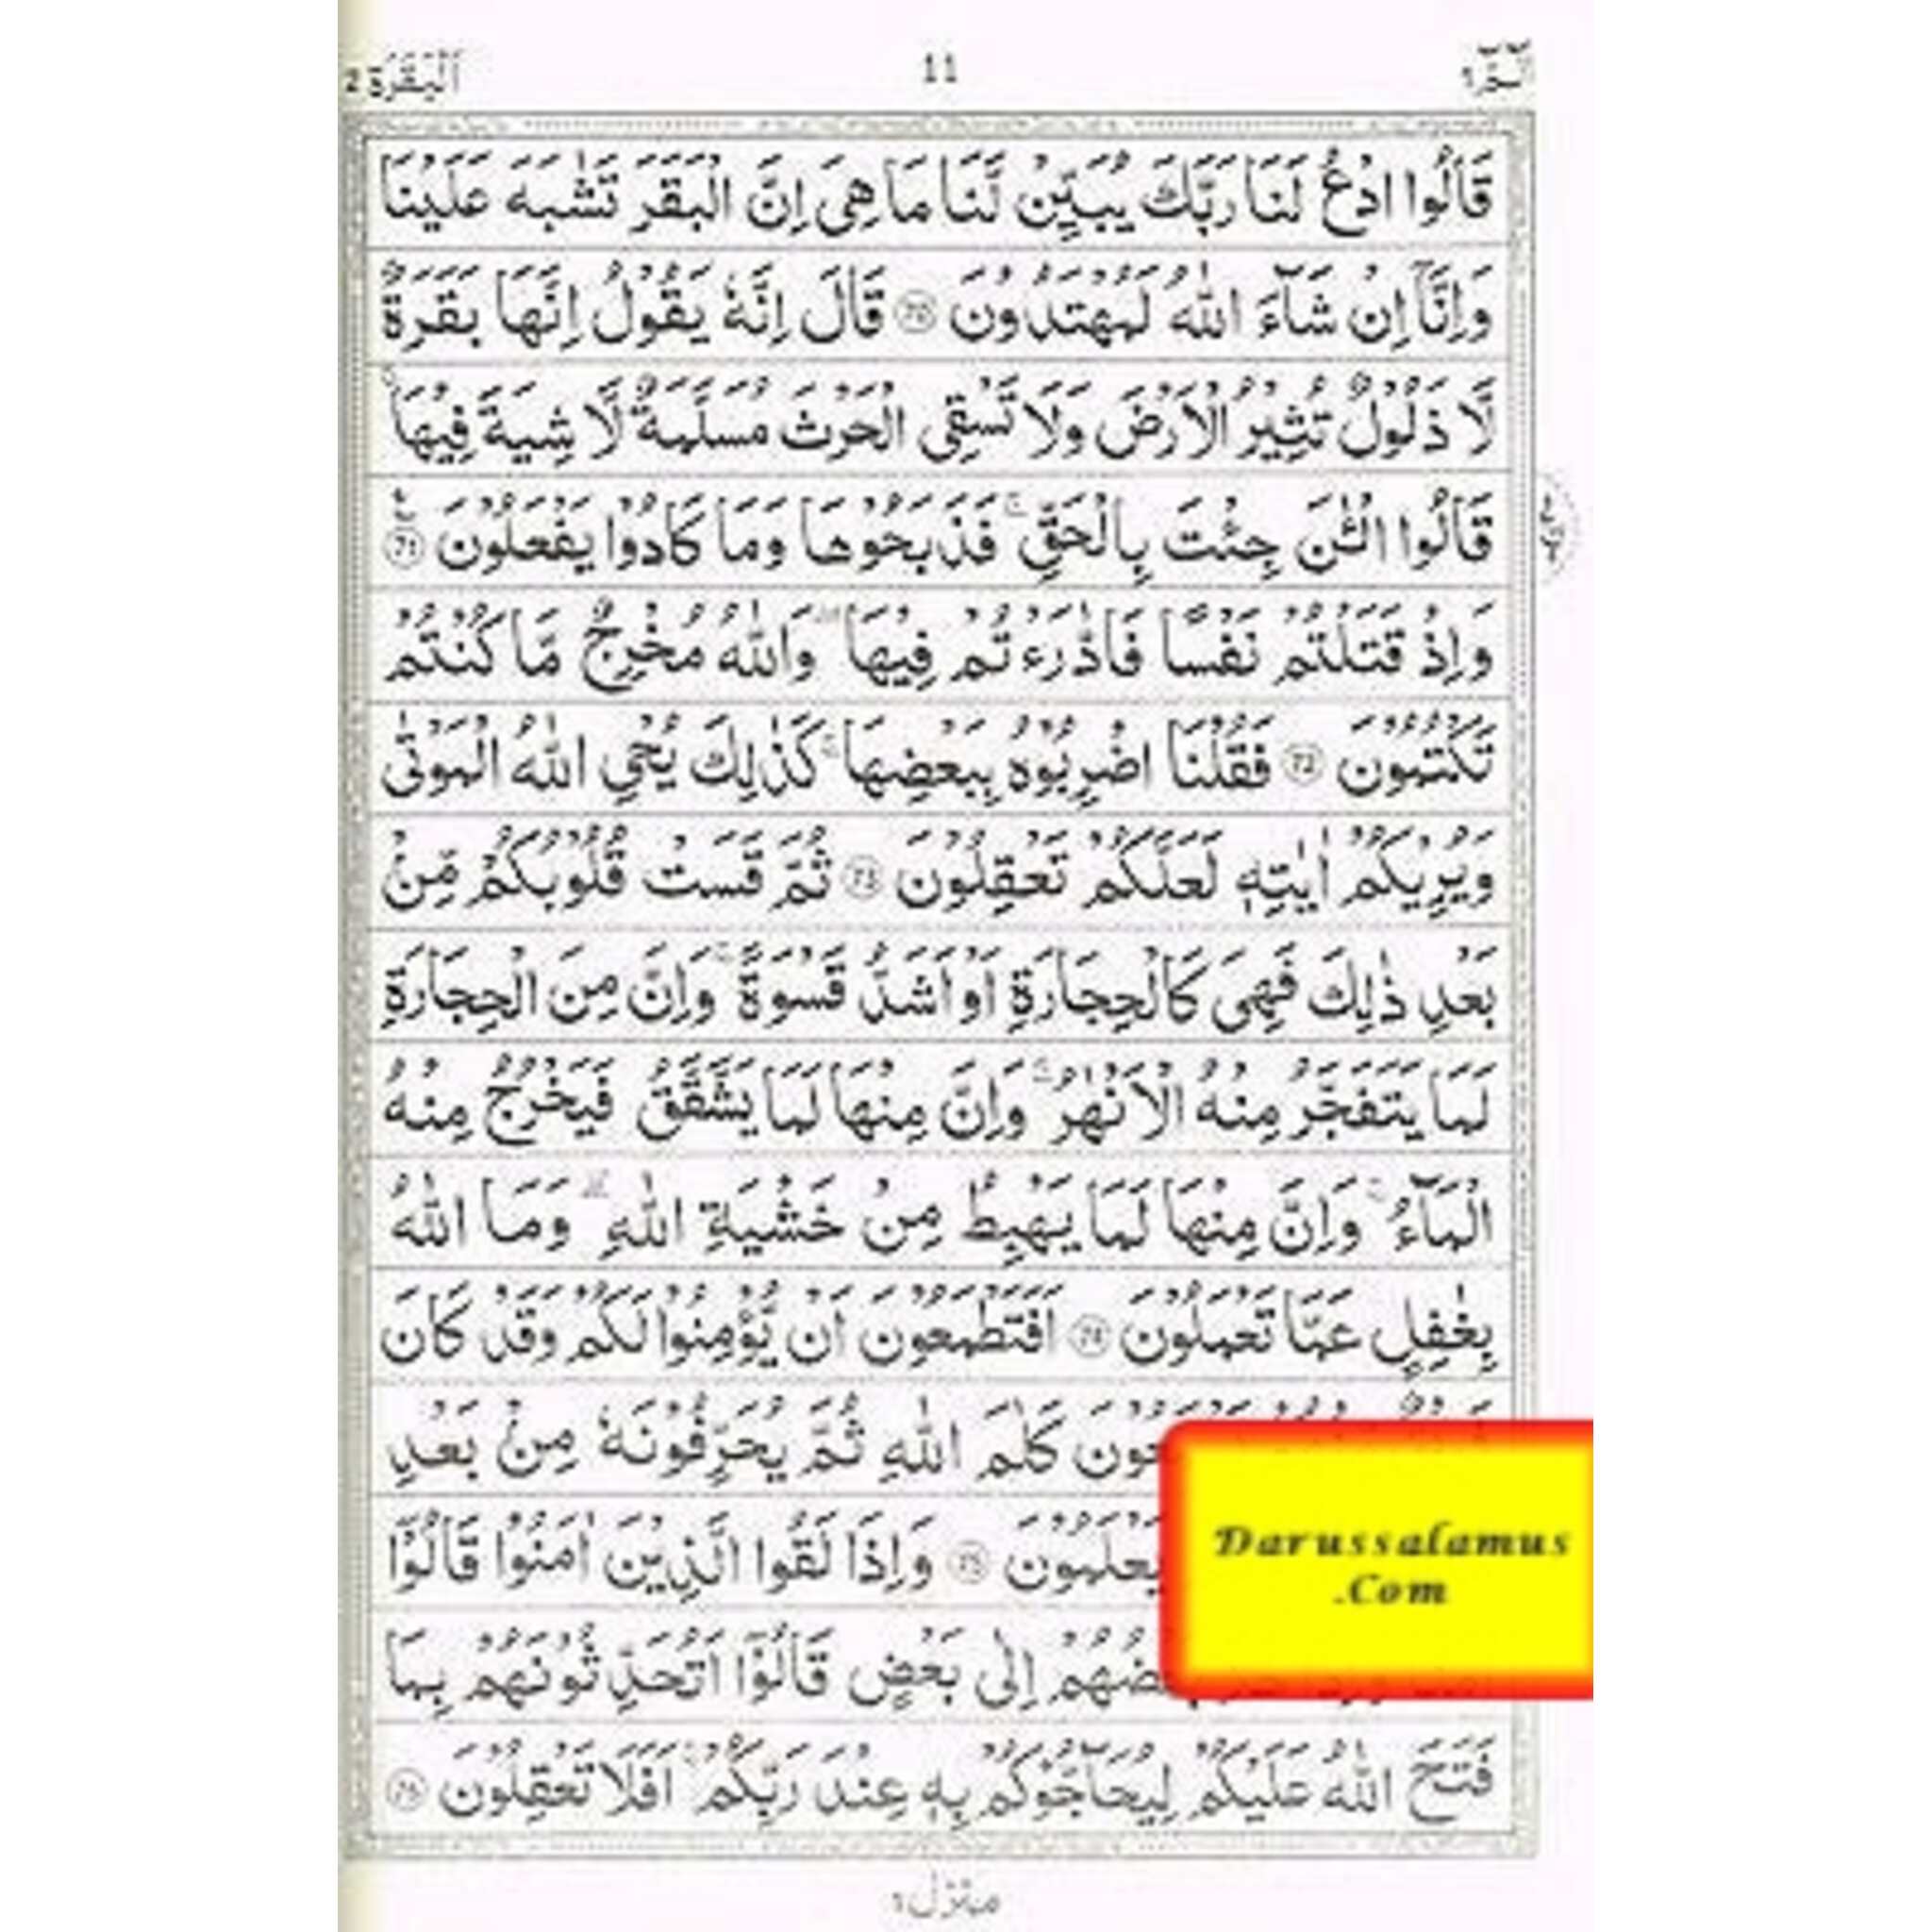 الٓمّٓ ١
11
اَلْبَقَرَة 2
قَالُوا ادْعُ لَنَا رَبَّكَ يُبَيِّنْ لَّنَا مَا هِىَ اِنَّ الْبَقَرَ تَشٰبَهَ عَلَيْنَا
وَاِنَّآ اِنْ شَآءَ اللّٰهُ لَمُهْتَدُوْنَ 70 قَالَ اِنَّهٗ يَقُوْلُ اِنَّهَا بَقَرَةٌ
لَّا ذَلُوْلٌ تُثِيْرُ الْاَرْضَ وَلَا تَسْقِى الْحَرْثَ مُسَلَّمَةٌ لَّا شِيَةَ فِيْهَا
قَالُوا الْـٰٔنَ جِئْتَ بِالْحَقِّ ۚ فَذَبَحُوْهَا وَمَا كَادُوْا يَفْعَلُوْنَ 71
وَاِذْ قَتَلْتُمْ نَفْسًا فَادّٰرَءْتُمْ فِيْهَا وَاللّٰهُ مُخْرِجٌ مَّا كُنْتُمْ
تَكْتُمُوْنَ 72 فَقُلْنَا اضْرِبُوْهُ بِبَعْضِهَا كَذٰلِكَ يُحْىِ اللّٰهُ الْمَوْتٰى
وَيُرِيْكُمْ اٰيٰتِهٖ لَعَلَّكُمْ تَعْقِلُوْنَ 73 ثُمَّ قَسَتْ قُلُوْبُكُمْ مِّنْ
بَعْدِ ذٰلِكَ فَهِىَ كَالْحِجَارَةِ اَوْ اَشَدُّ قَسْوَةً وَاِنَّ مِنَ الْحِجَارَةِ
لَمَا يَتَفَجَّرُ مِنْهُ الْاَنْهٰرُ وَاِنَّ مِنْهَا لَمَا يَشَّقَّقُ فَيَخْرُجُ مِنْهُ
الْمَآءُ وَاِنَّ مِنْهَا لَمَا يَهْبِطُ مِنْ خَشْيَةِ اللّٰهِ وَمَا اللّٰهُ
بِغٰفِلٍ عَمَّا تَعْمَلُوْنَ 74 اَفَتَطْمَعُوْنَ اَنْ يُّؤْمِنُوْا لَكُمْ وَقَدْ كَانَ
كَلٰمَ اللّٰهِ ثُمَّ يُحَرِّفُوْنَهٗ مِنْۢ بَعْدِ
يَعْلَمُوْنَ 75 وَاِذَا لَقُوا الَّذِيْنَ اٰمَنُوْا قَالُوْٓا
اِلٰى بَعْضٍ قَالُوْٓا اَتُحَدِّثُوْنَهُمْ بِمَا
فَتَحَ اللّٰهُ عَلَيْكُمْ لِيُحَآجُّوْكُمْ بِهٖ عِنْدَ رَبِّكُمْ اَفَلَا تَعْقِلُوْنَ 76
Darussalamus
.Com
منزل ١